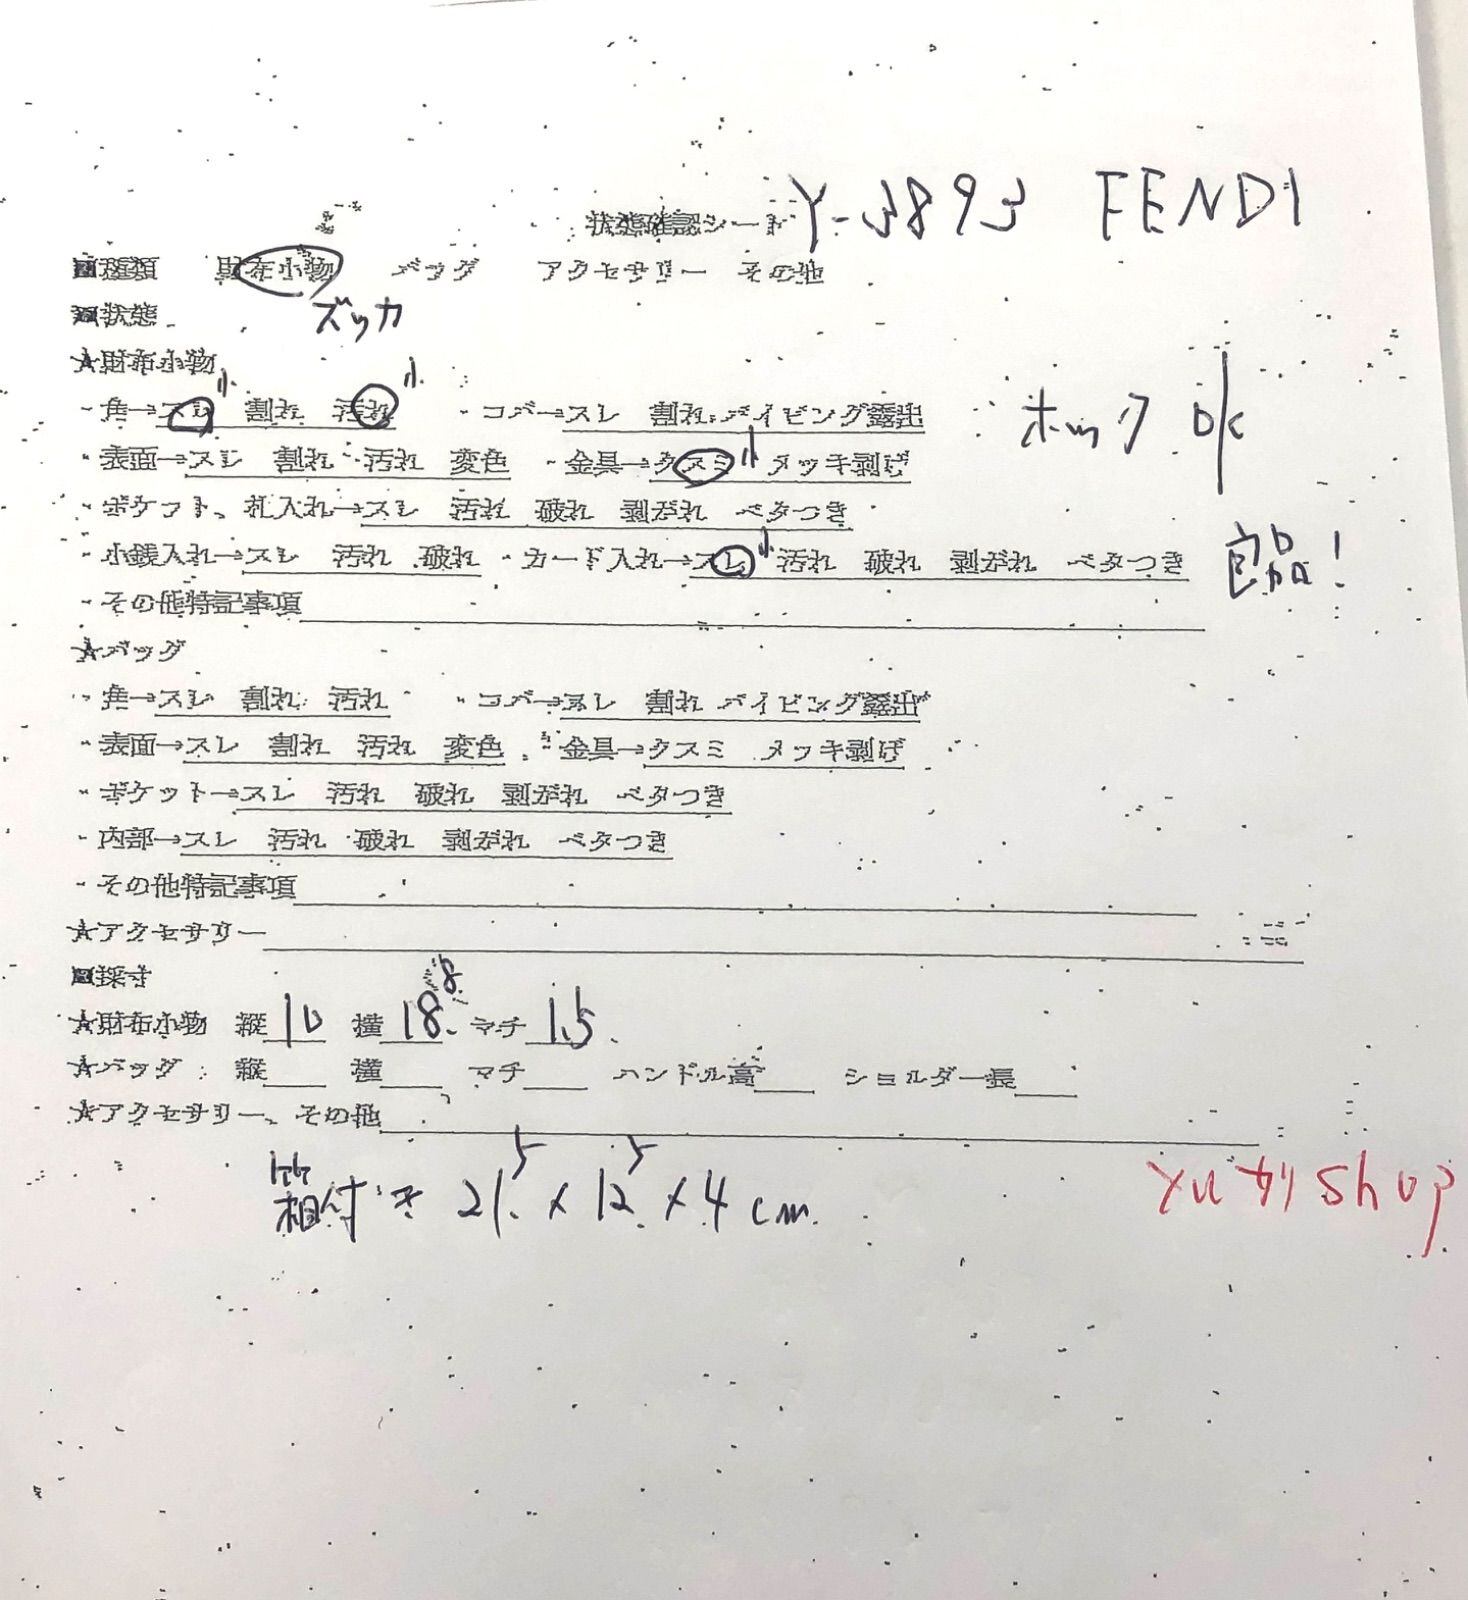 状態確認シート Y-3893 FENDI
■種類 財布小物 バッグ アクセサリー その他
■状態 ズッカ
★財布小物
・角→スレ小 割れ 汚れ小 ・コバ→スレ 割れ パイピング露出 ホック OK
・表面→スレ 割れ 汚れ 変色 ・金具→クスミ小 メッキ剥げ
・ポケット、札入れ→スレ 汚れ 破れ 剥がれ ベタつき
・小銭入れ→スレ 汚れ 破れ ・カード入れ→スレ小 汚れ 破れ 剥がれ ベタつき 良品!
・その他特記事項
★バッグ
・角→スレ 割れ 汚れ ・コバ→スレ 割れ パイピング露出
・表面→スレ 割れ 汚れ 変色 ・金具→クスミ メッキ剥げ
・ポケット→スレ 汚れ 破れ 剥がれ ベタつき
・内部→スレ 汚れ 破れ 剥がれ ベタつき
・その他特記事項
★アクセサリー
■採寸
★財布小物 縦 10 横 18.8 マチ 1.5
★バッグ 縦 横 マチ ハンドル高 ショルダー長
★アクセサリー、その他
箱付き 21.5×12.5×4cm
shop